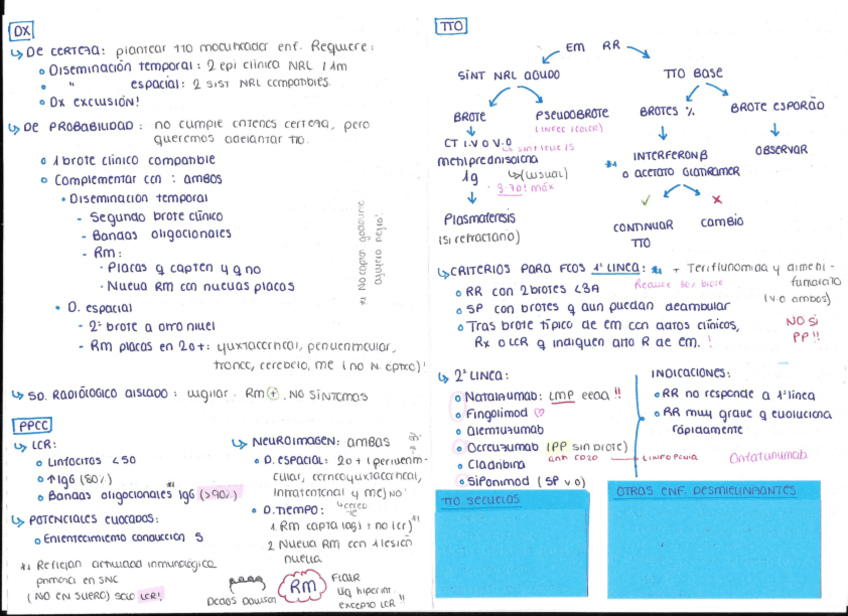 DX
↳ DE CERTEZA: plantear TTO modificador enf. Requiere:
Diseminación temporal: 2 epi clínica NRL / 1m
" espacial: 2 sist NRL compatibles.
Dx EXCLUSIÓN!
↳ DE PROBABILIDAD: no cumple criterios certeza, pero
queremos adelantar TTO.
1 brote clínico compatible
Complementar con: ambos
Diseminación temporal
- Segundo brote clínico
- Bandas oligoclonales
- Rm:
Placas q capten y q no
Nueva RM con nuevas placas
D. espacial
- 2º brote a otro nivel
- Rm placas en 20+: yuxtacortical, periventricular,
tronco, cerebelo, me (no N. óptico)
*1 No captan gadolinio
agujero negro.
↳ SD. RADIOLÓGICO AISLADO: vigilar. Rm +. NO SÍNTOMAS
PPCC
↳ LCR:
Linfocitos <50
↑IgG (80%)
Bandas oligoclonales IgG (>90%) *1
↳ POTENCIALES EVOCADOS:
Enlentecimiento conducción S
*1 Reflejan actividad inmunológica
primaria en SNC
(NO EN SUERO) SOLO LCR!
↳ NEUROIMAGEN: ambas
D. ESPACIAL: 20+ (periventri-
cular, corticoyuxtacortical,
infratentorial y me) NO
D. TIEMPO:
1 Rm capta
2 Nueva Rm con 1 lesión
nueva
Dedos Dawson
Rm
FLAIR
hiperint.
excepto LCR!!
TTO
EM RR
SÍNT NRL AGUDO
TTO BASE
BROTE
PSEUDOBROTE
BROTES %
BROTE ESPORÁD
(INFEC, CALOR)
CT I.V O V.O
metilprednisolona
1g
(usual)
3-7d! máx
Plasmaféresis
(Si refractario)
*1 INTERFERON β
o acetato GLATIRAMER
OBSERVAR
✓ ✗
CONTINUAR
TTO
CAMBIO
↳ CRITERIOS PARA FCOS 1ª LINEA: *1 + Teriflunomida y dimetil-
fumarato
(v.o ambos)
Reduce 30% brote
RR con 2 brotes <3A
SP con brotes q aun puedan deambular
Tras brote típico de em con datos clínicos,
Rx o LCR q indiquen alto R de em. !
NO SI
PP!!
↳ 2ª LINEA:
Natalizumab: LMP !!
Fingolimod ♡
Alemtuzumab
Ocrelizumab (PP sin brote)
anti CD20 → LINFOPENIA
Cladribina
Siponimod (SP v.o)
Ofatumumab
INDICACIONES:
RR no responde a 1ª linea
RR muy grave q evoluciona
rápidamente
TTO SECUELAS
OTRAS ENF. DESMIELINIZANTES